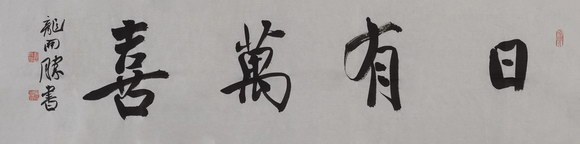 日有萬喜
龍雨勝書